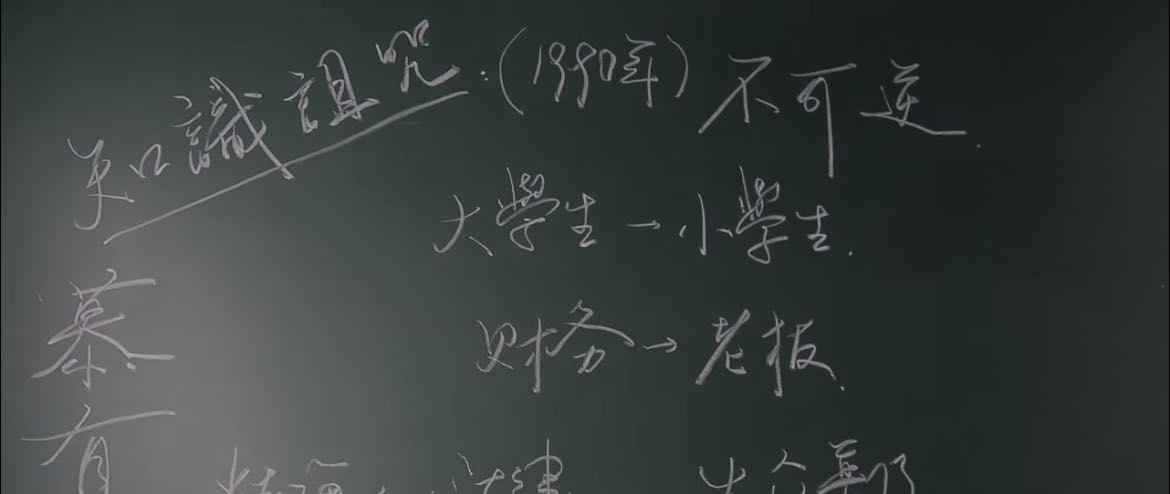 知識詛咒:(1990年)不可逆.
大學生→小學生.
财务→老板.
慕
有